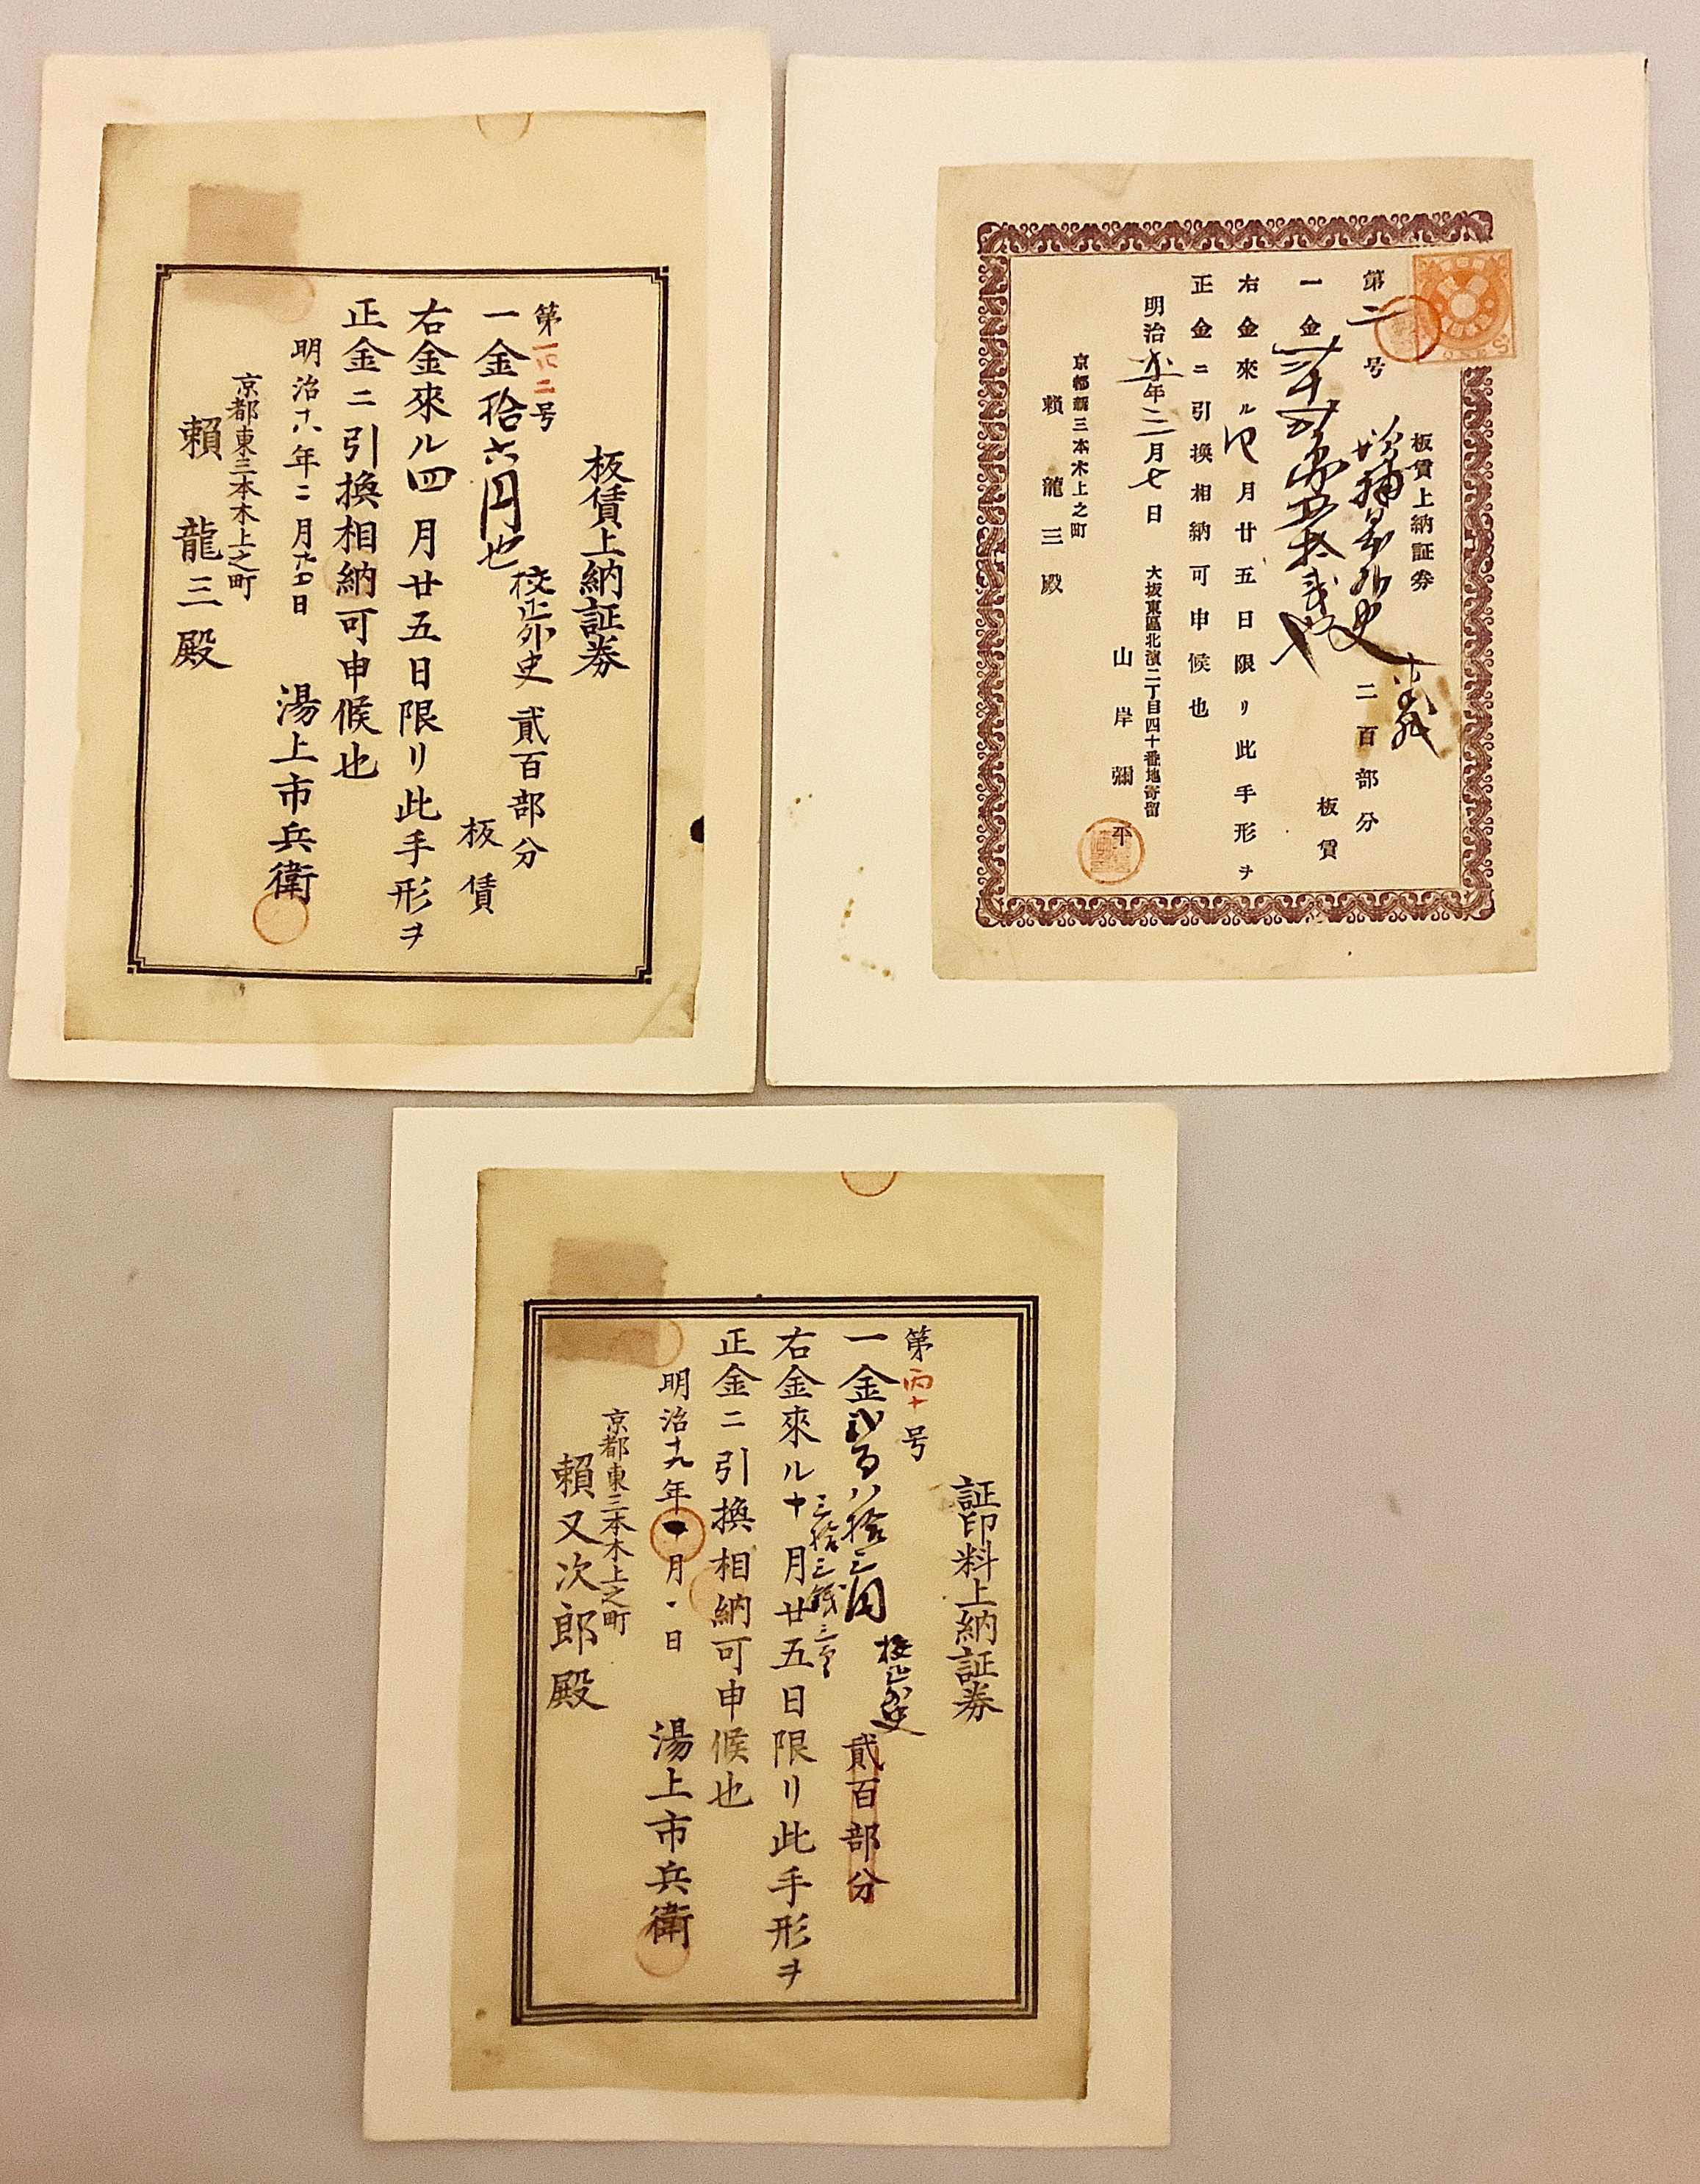 板賃上納証券
第
二号
一金拾六円也
校正外史 貮百部分
板賃
右金來ル四月廿五日限リ此手形ヲ
正金ニ引換相納可申候也
明治十八年二月 日
湯上市兵衛
京都東三本木上之町
賴龍三殿
板賃上納証券
第二号
外史
二百部分
一金
板賃
右金來ル 月廿五日限リ此手形ヲ
正金ニ引換相納可申候也
明治 年二月七日
大坂東區北濵二丁目四十番地寄留
山岸彌平
京都新三本木上之町
賴龍三殿
ONE S
証印料上納証券
第丙十号
一金 百八拾三円
三拾三錢三
校正外史
貮百部分
右金來ル十月廿五日限リ此手形ヲ
正金ニ引換相納可申候也
明治十九年 月 日
湯上市兵衛
京都東三本木上之町
賴又次郎殿